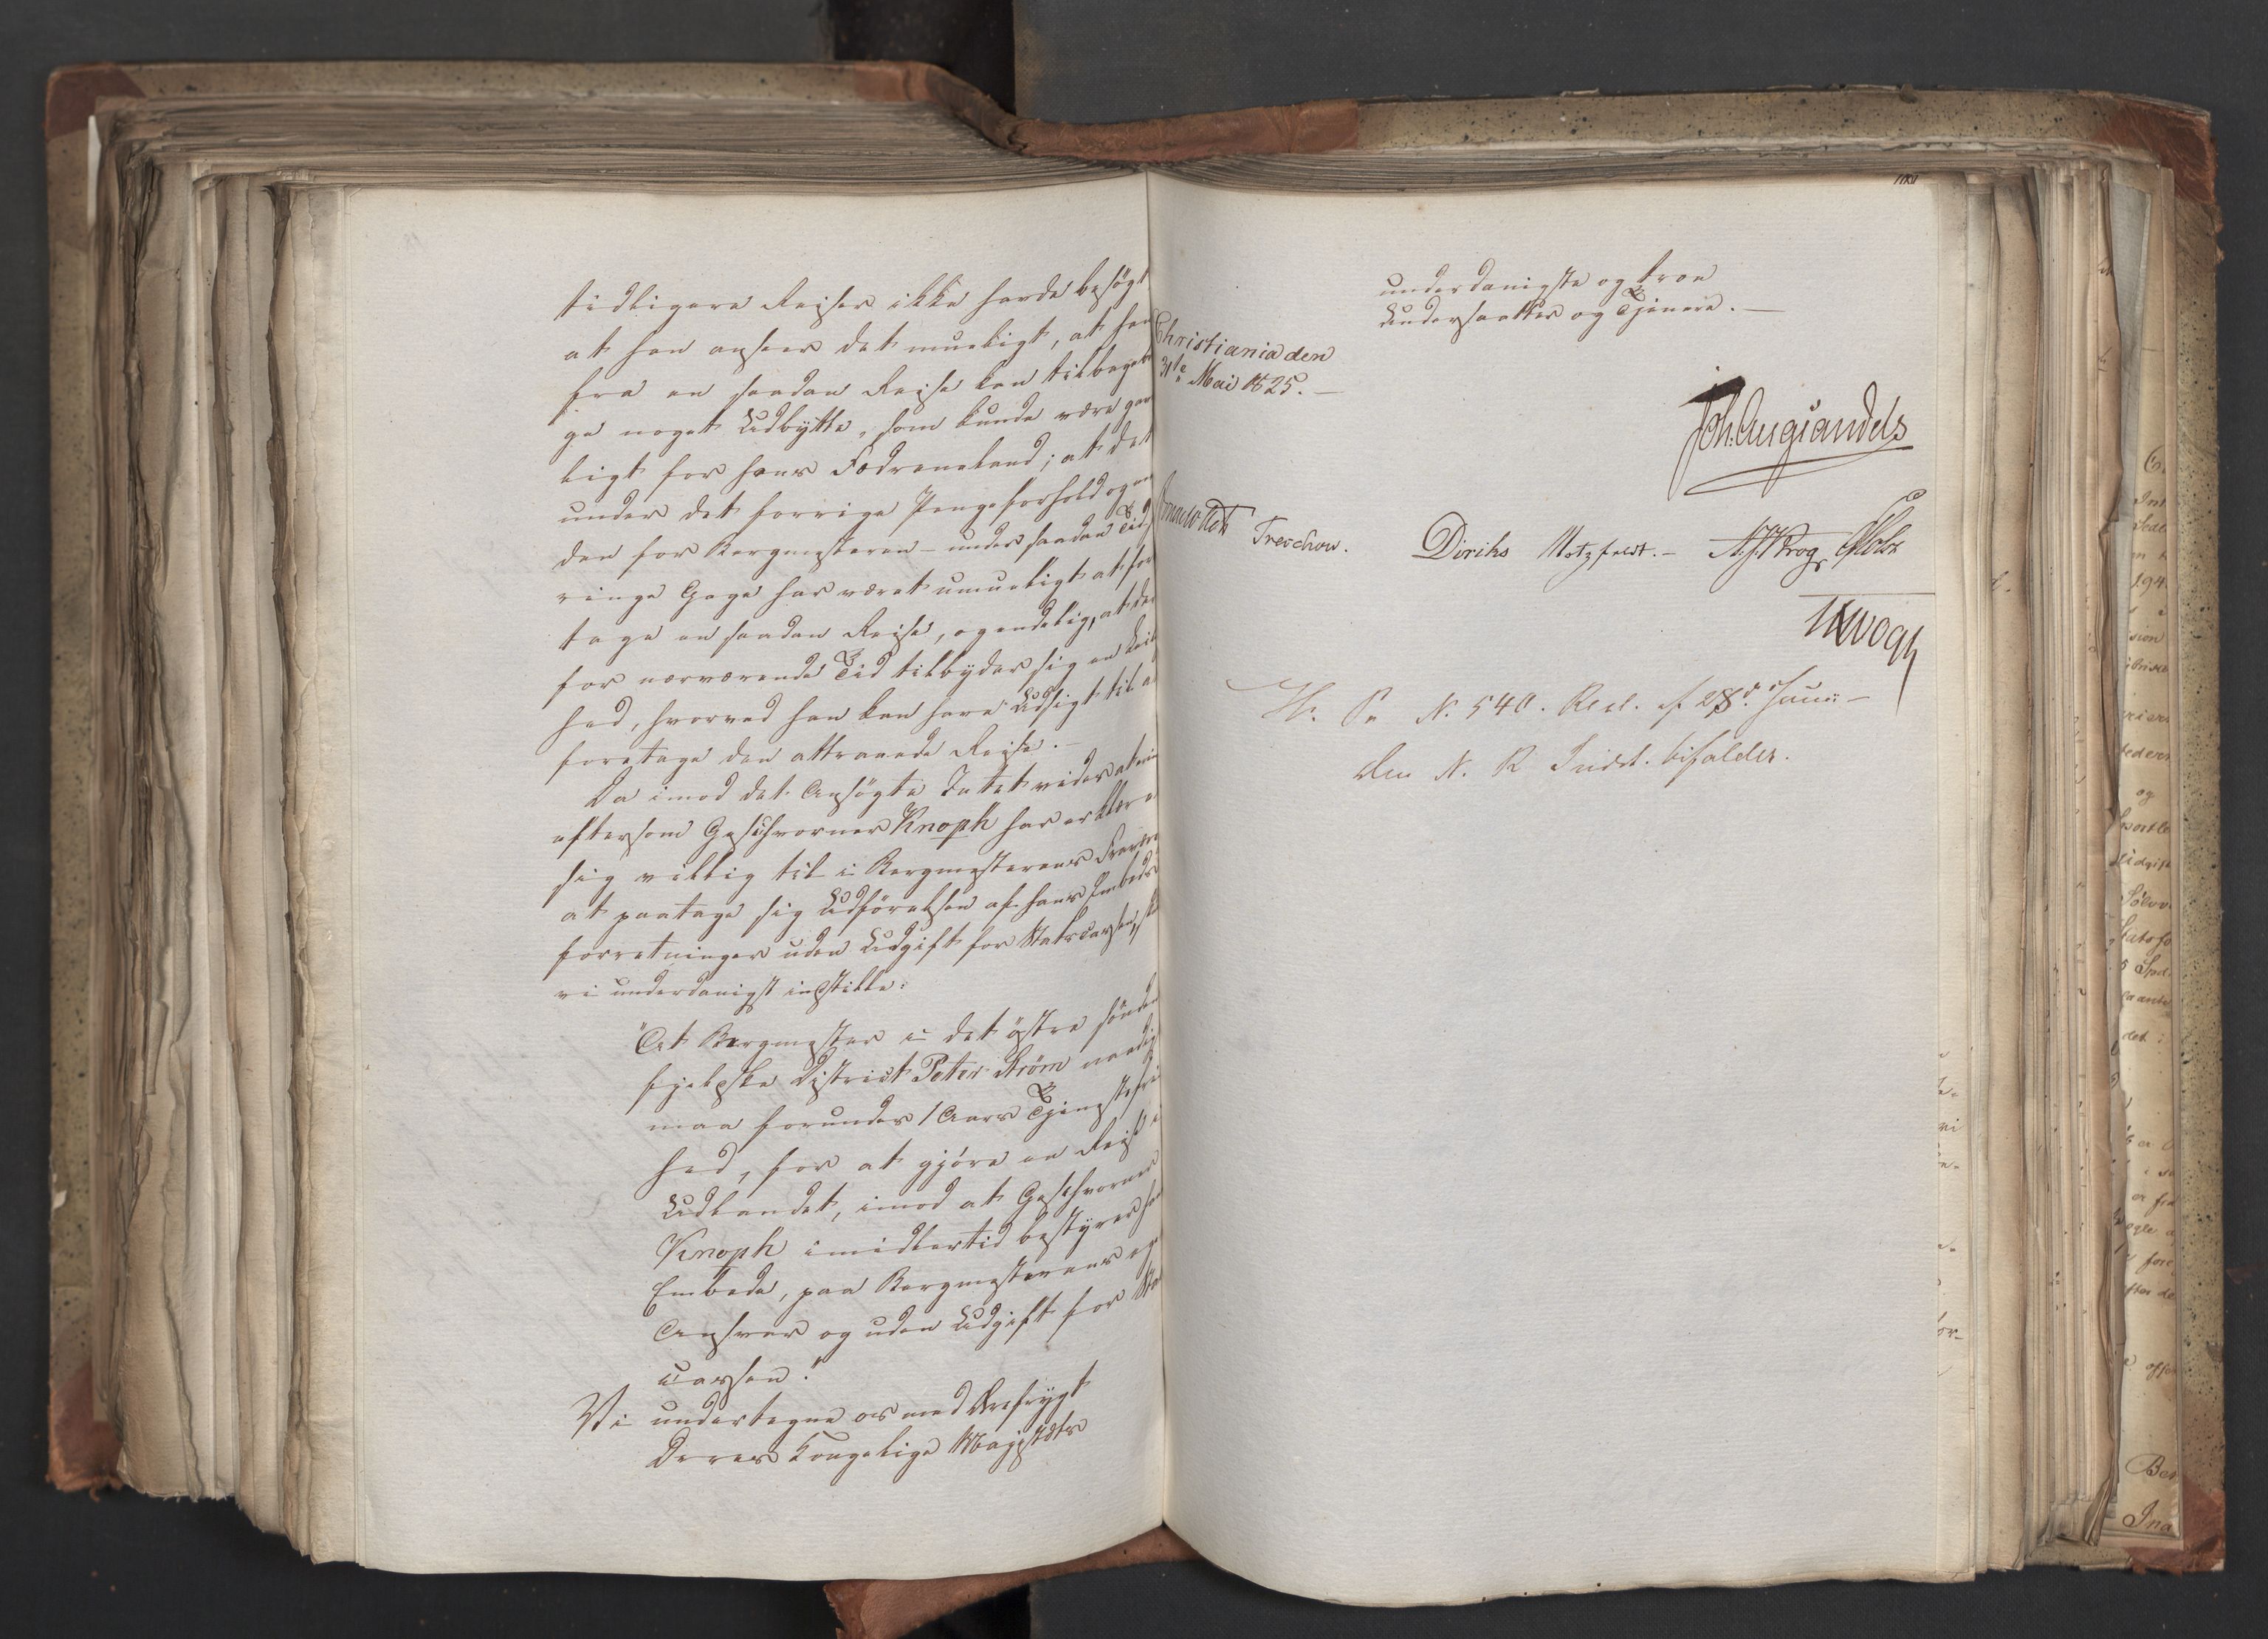 tidligere Reiser ikke havde besøgt
at han anseer det mueligt, at han
fra en saadan Reise kan tilbage
ge noget Udbytte, som kunde være gav
ligt for hans Fødreneland; at det
under det forrige Pengeforhold og en
den for Bergmesteren - under saadan Tid
ringe Gage har været umueligt at fore
tage en saadan Reise, og endelig, at der
for nærværende Tid tilbyder sig en Leilig
hed, hvorved han kan have Udsigt til at
foretage den attraaede Reise. -
Da imod det Ansøgte Intet vides at
eftersom Geschworner Knoph har erklæret
sig villig til i Bergmesterens Fravær
at paatage sig Udførelsen af hans Embeds
forretninger uden Udgift for Statscassen, skulle
vi underdanigst indstille:
"At Bergmester i det østre sønden
fjelske District Peter Strøm naadigst
maa forundes 1 Aars Tjenestefri
hed, for at gjøre en Reise i
Udlandet, imod at Geschworner
Knoph imidlertid bestyrer hans
Embede, paa Bergmesterens eget
Ansvar og uden Udgift for Stats
cassen."
Vi undertegne os med Ærefrygt
Deres Kongelige Majestæts
underdanigste og troe
Undersaatter og Tjenere. -
Christiania den
31te Mai 1825. -
Joh. Aug. Sandels
Sommerfeldt
Treschow.
Diriks
Motzfeldt. -
N. J. Krog
Holst
Vogt
H. Pr N. 540. Resl. af 28de Junii -
Den N. R Indst. bifaldes.